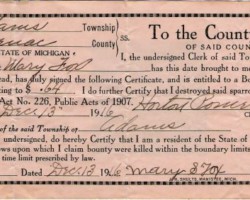 Adams Township
County
ss.
To the Coun
OF SAID COUN
STATE OF MICHIGAN
I, the undersigned Clerk of said To
Mary Fox has this date brought to me
ead, has duly signed the following Certificate, and is entitled to a Bo
$ .64 I do further Certify that I destroyed said sparro
Act No. 226, Public Acts of 1907.
Dec 13 1916
of the said Township of Adams
undersigned, do hereby Certify that I am a resident of the State of
ows upon which I claim bounty were killed within the boundary limits
time limit prescribed by law.
Dated Dec 13 1916 Mary Fox
MANISTEE, MICH.